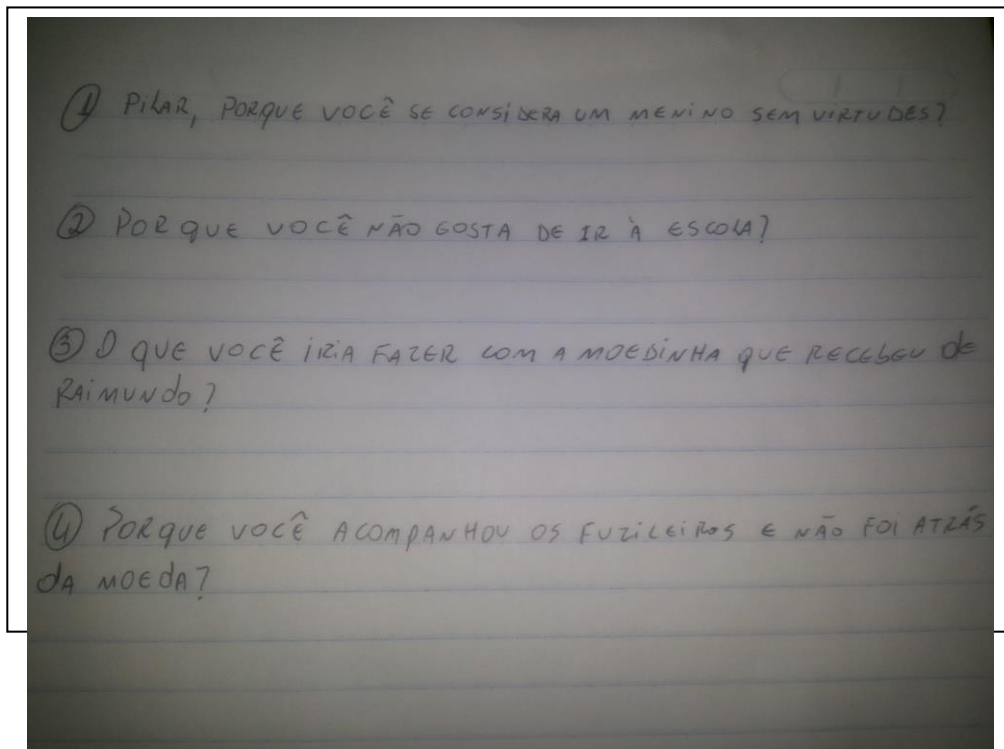 ① PILAR, PORQUE VOCÊ SE CONSIDERA UM MENINO SEM VIRTUDES?
② POR QUE VOCÊ NÃO GOSTA DE IR À ESCOLA?
③ O QUE VOCÊ IRIA FAZER COM A MOEDINHA QUE RECEBEU de
RAIMUNdo?
④ PORQUE VOCÊ ACOMPANHOU OS FUZILEIROS E NÃO FOI ATRÁS
dA MOEdA?